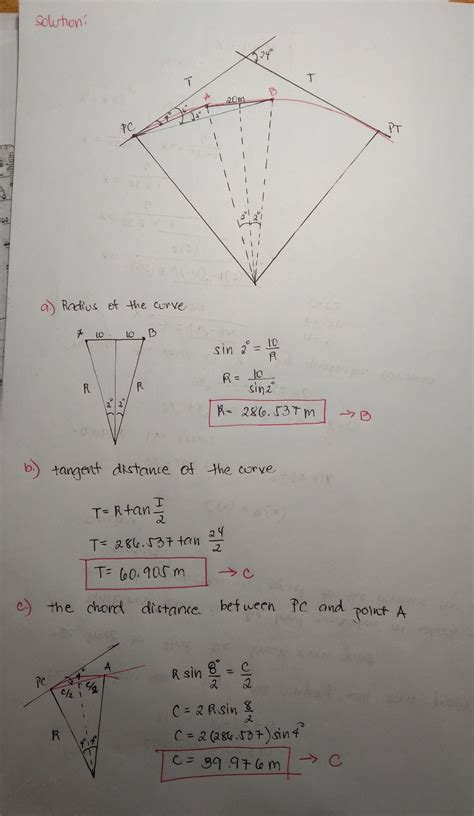 solution:
24°
T
T
A
B
20m
4°
6°
2°
PC
PT
2° 2°
a) Radius of the curve
A 10 10 B
R R
2° 2°
sin 2° = 10/R
R = 10/sin2°
R = 286.537 m → B
b) tangent distance of the curve
T = R tan I/2
T = 286.537 tan 24/2
T = 60.905 m → C
c) the chord distance between PC and point A
PC 4° A
C/2 C/2
R
4° 4°
R sin 8°/2 = C/2
C = 2 R sin 8/2
C = 2(286.537) sin 4°
C = 39.976 m → C